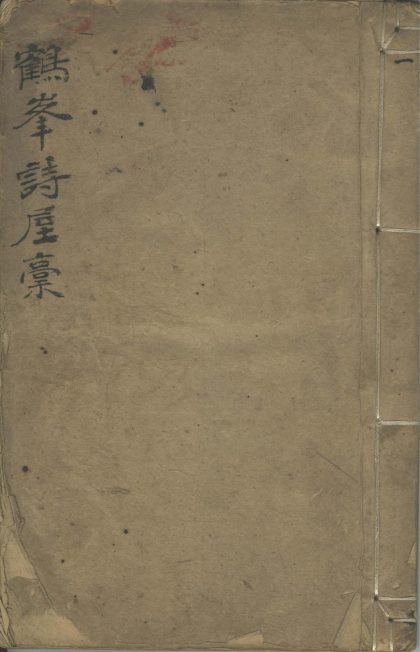 鶴峯詩屋稾
一